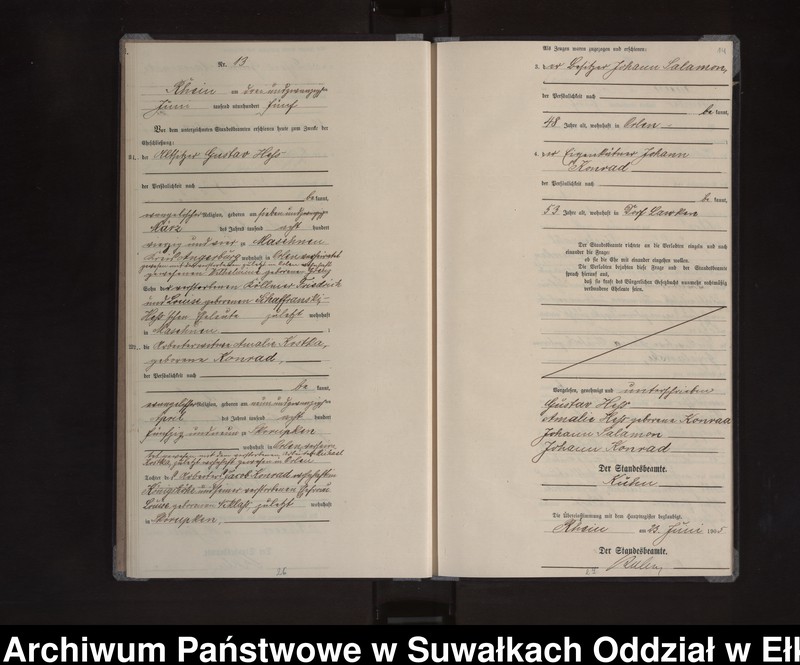 Nr. 13
Rhein am drei und zwanzigsten
Juni tausend neunhundert fünf
Vor dem unterzeichneten Standesbeamten erschienen heute zum Zwecke der
Eheschließung:
1. der Altsitzer Gustav Hess
der Persönlichkeit nach
be kannt,
evangelischer Religion, geboren am sieben und zwanzigsten
März des Jahres tausend acht hundert
vierzig und vier zu Maschnen
Kreis Angerburg wohnhaft in Orlen verheirathet
gewesen mit der verstorbenen zuletzt in Orlen wohnhaft
gewesenen Wilhelmine geborenen
Sohn der verstorbenen Köllmer Friedrich
und Louise geborenen Schaffranski-
Hess'schen Eheleute zuletzt wohnhaft
in Maschnen
2. die Arbeiterwitwe Amalie Kostka,
geborene Konrad,
der Persönlichkeit nach
be kannt,
evangelischer Religion, geboren am neun und zwanzigsten
April des Jahres tausend acht hundert
fünfzig und neun zu Skorupken
wohnhaft in Orlen, verheira-
tet gewesen mit dem verstorbenen Arbeiter Michael
Kostka, zuletzt wohnhaft gewesen in Orlen
Tochter des Arbeiters Jacob Konrad wohnhaft in
und seiner verstorbenen Ehefrau
Louise, geborenen zuletzt wohnhaft
in Skorupken,
26
Als Zeugen waren zugezogen und erschienen:
3. der Besitzer Johann Salamon,
der Persönlichkeit nach
be kannt,
48 Jahre alt, wohnhaft in Orlen
4. der Eigenkätner Johann
Konrad
der Persönlichkeit nach
be kannt,
53 Jahre alt, wohnhaft in Dorf Lawken
Der Standesbeamte richtete an die Verlobten einzeln und nach
einander die Frage:
ob sie die Ehe mit einander eingehen wollen.
Die Verlobten bejahten diese Frage und der Standesbeamte
sprach hierauf aus,
daß sie kraft des Bürgerlichen Gesetzbuchs nunmehr rechtmäßig
verbundene Eheleute seien.
Vorgelesen, genehmigt und unterschrieben
Gustav Hess
Amalie Hess geborene Konrad
Johann Salamon
Johann Konrad
Der Standesbeamte.
Kuhn
Die Übereinstimmung mit dem Hauptregister beglaubigt.
Rhein am 23. Juni 1905
Der Standesbeamte.
Archiwum Państwowe w Suwałkach Oddział w Eł